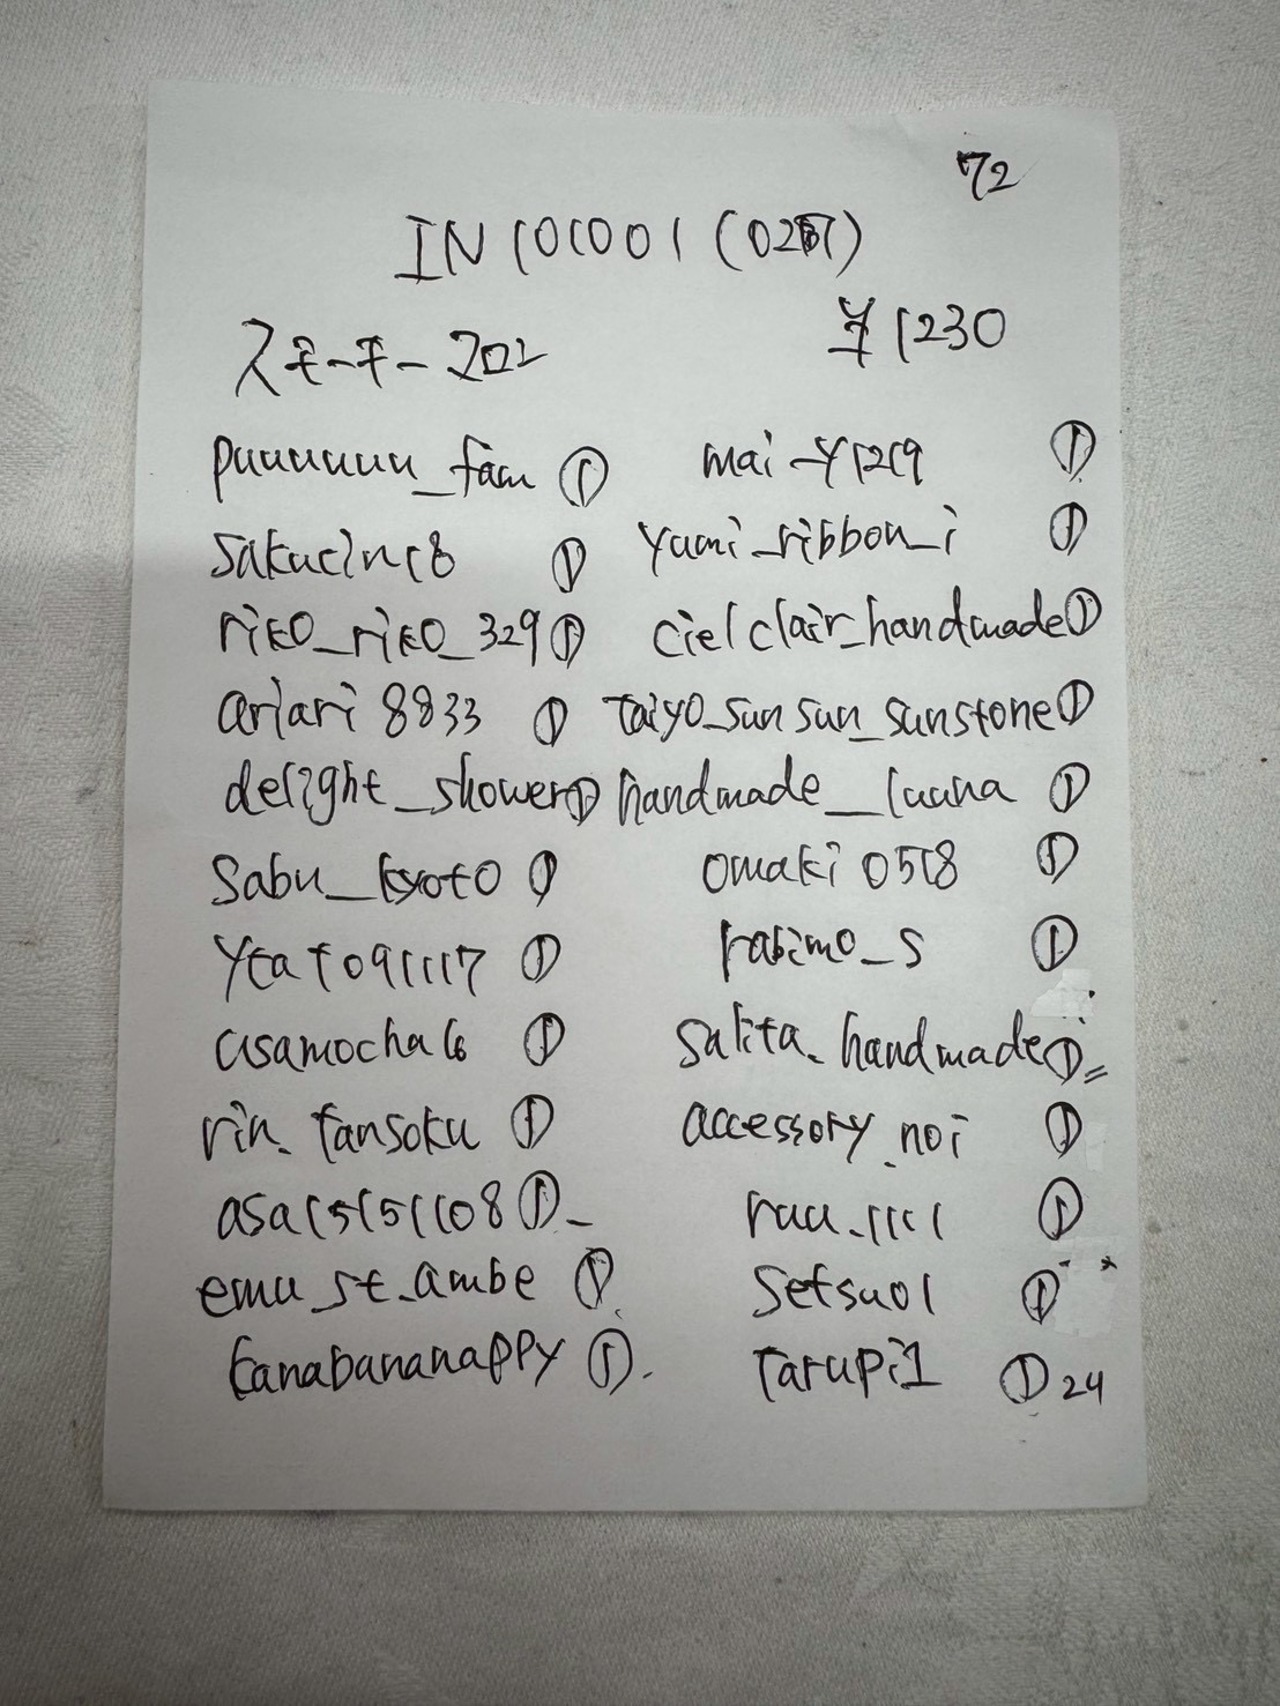 72
IN 101001 (0257)
スモーキー クロス ¥1230
puuuuuuu_fam ①
mai_y1219 ①
①
yumi_ribbon_i ①
riko_riko_329 ①
cielclair_handmade ①
ariari8833 ①
taiyo_sunsun_sunstone ①
delight_shower ①
handmade__luuna ①
sabu_kyoto ①
omaki0518 ①
ykato91117 ①
rabimo_s ①
asamocha16 ①
salita_handmade ①
rin_tansoku ①
accessory_noi ①
asa15151108 ①
ruu_1111 ①
emu_st_ambe ①
setsu01 ①
kanabananappy ①
tarupi1 ① 24